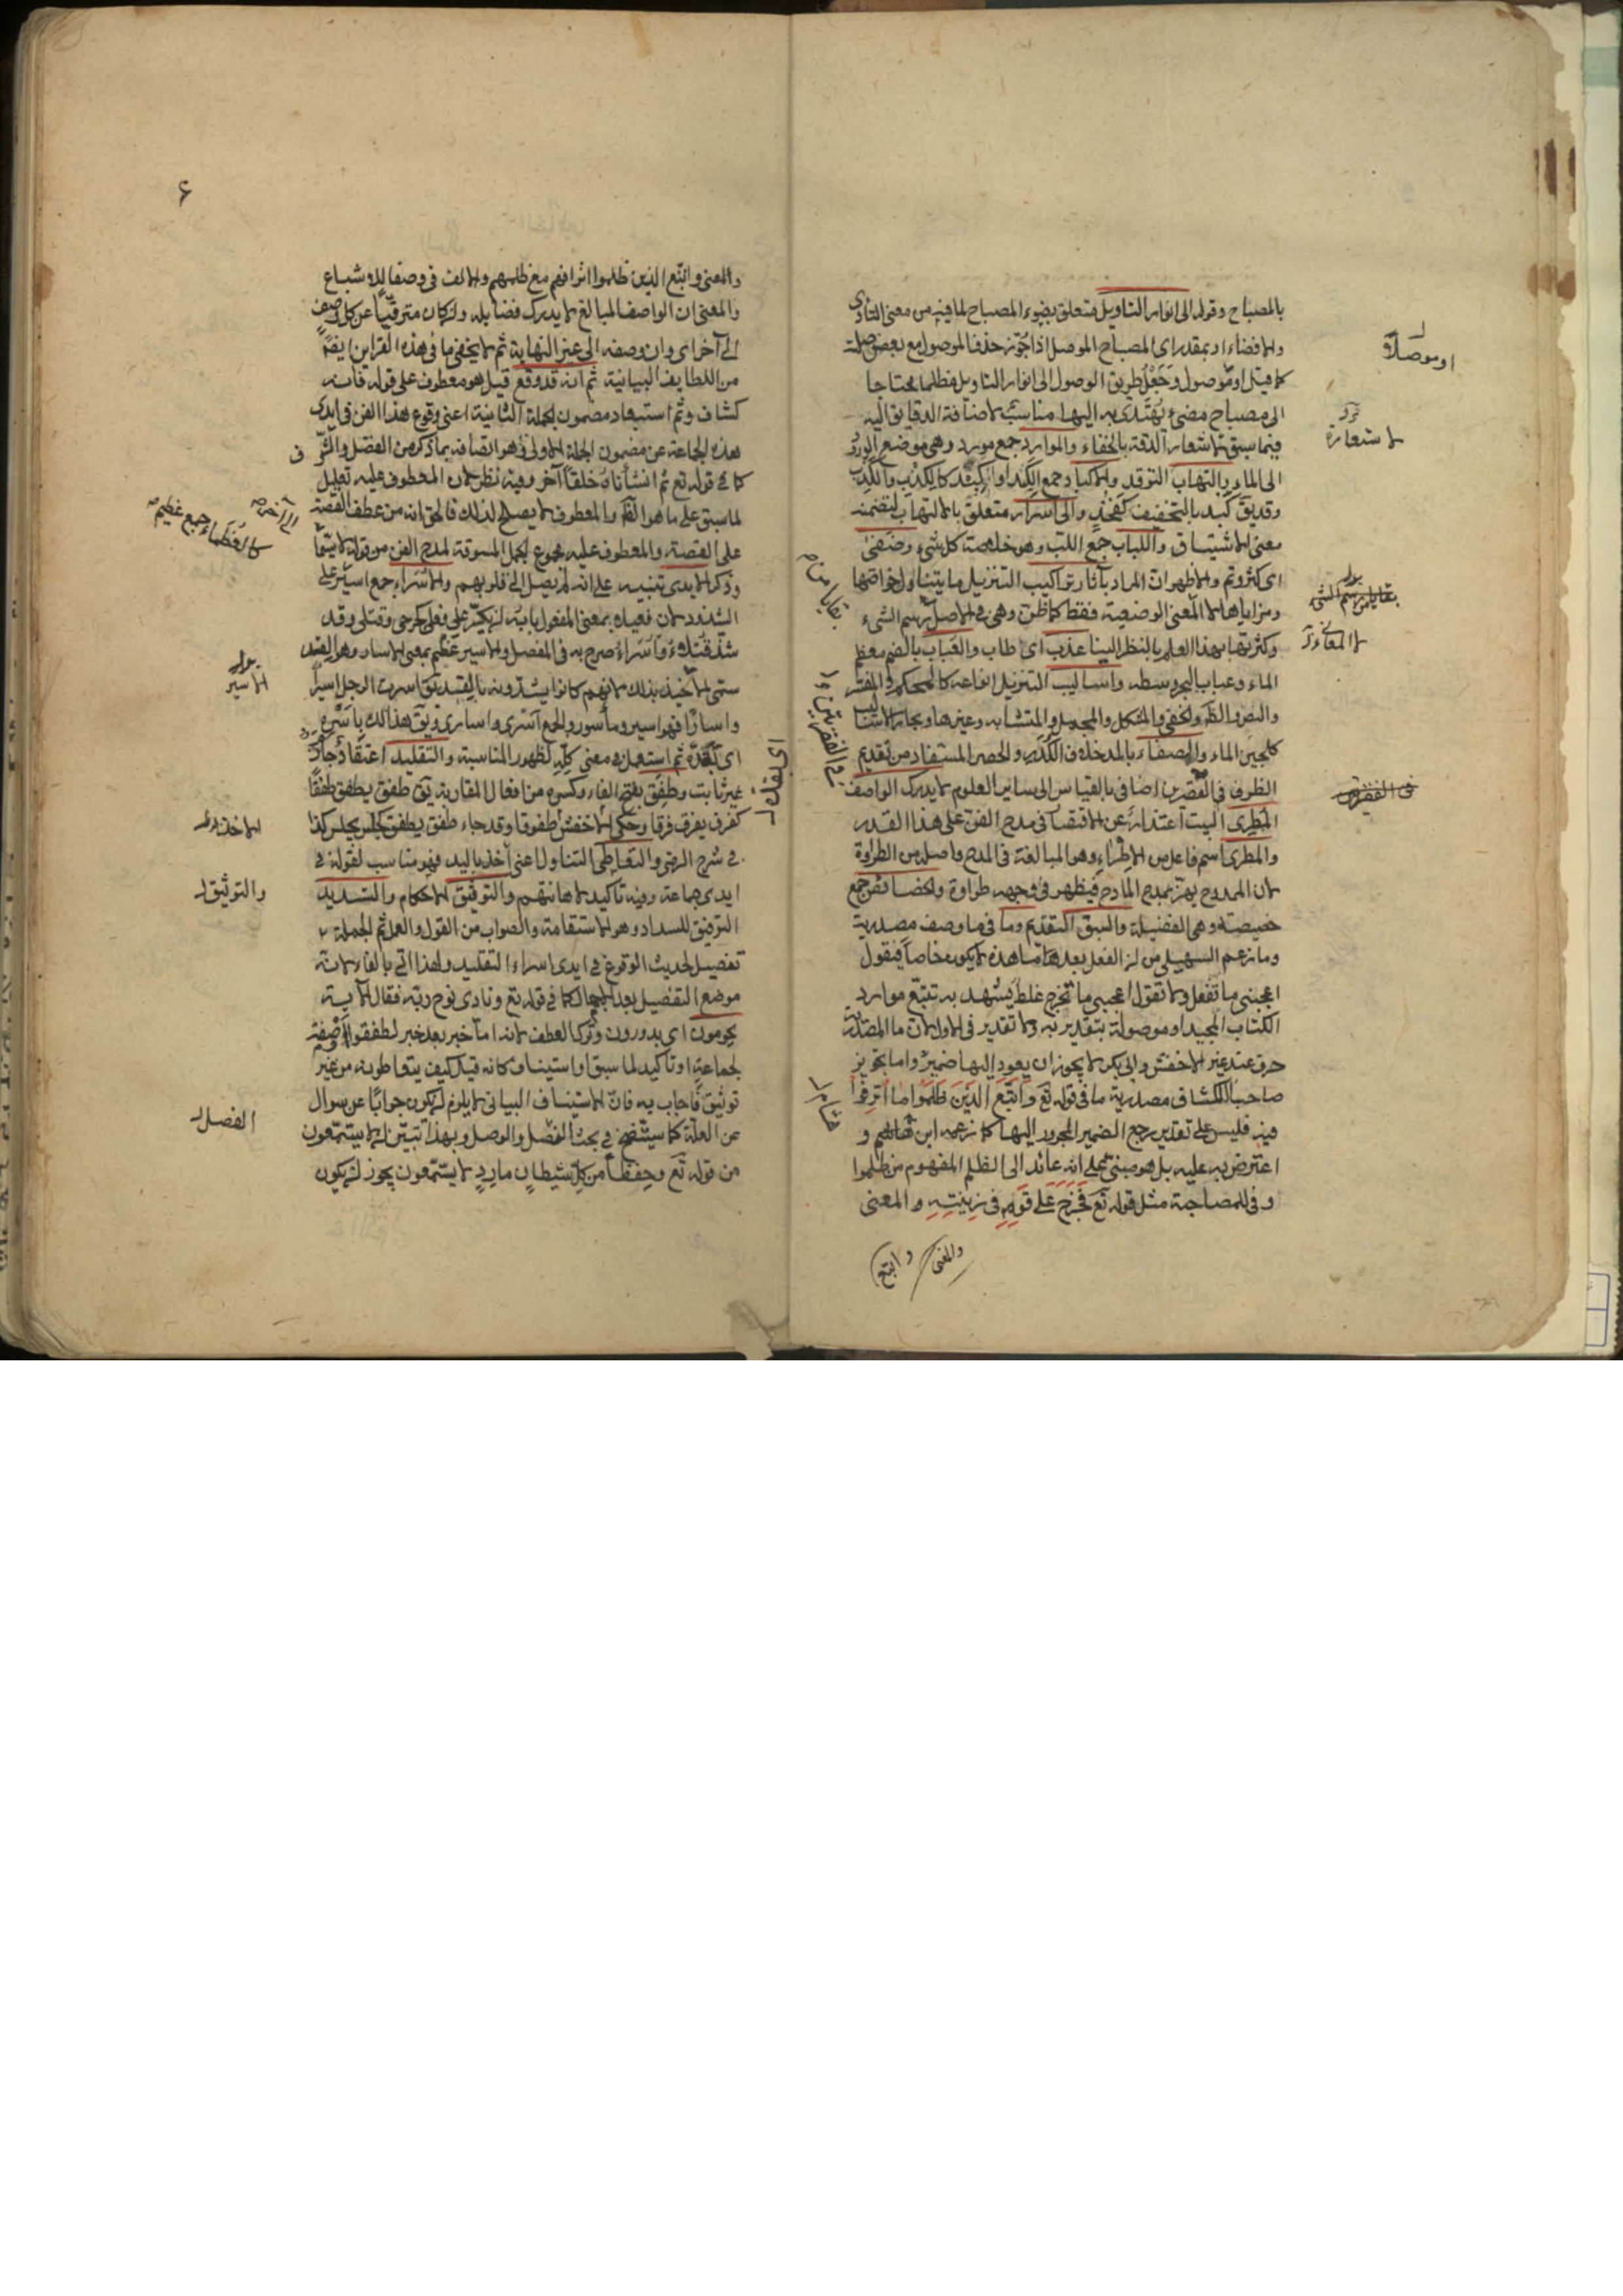 بالمصباح وقوله الى انوار التاويل متعلق بضوء المصباح لما فيه من معنى التأدى
والافضاء او بمقدر اى المصباح الموصل اذا جوز حذف الموصول مع بعض صلته
كما قيل او موصول وجعل طريق الوصول الى انوار التاويل مظلما محتاجا
الى مصباح مضىء يهتدى به اليها مناسب لاضافة الدقايق اليه
فيما سبق لاشعار الدقة بالخفاء والموارد جمع مورد وهى موضع الورود
الى الماء والتهاب التوقد والاكباد جمع الكبد او الكبد كالكذب والكذب
وقد يق كبد بالتخفيف كفخذ والى اسرار متعلق بالالتهاب لتضمنه
معنى الاشتياق واللباب جمع اللب وهو خلاصة كل شىء وضفى
اى كثر وتم والاظهر ان المراد بآثار تراكيب التنزيل ما يتناول خواصها
ومزاياها لا المعنى الوضعية فقط كما ظن وهى فى الاصل رسم الشىء
وكثرتها بهذا العلم بالنظر الينا عذب اى طاب والعباب بالضم معظم
الماء وعباب البحر وسطه واساليب التنزيل انواعه كالمحكم والمفسر
والنص والظ والخفى والمشكل والمجمل والمتشابه وغيرها ومجاز الاساليب
كلجين الماء والصفاء بالمد خلاف الكدر والحصر المستفاد من تقديم
الظرف فى القصرين اضافى بالقياس الى ساير العلوم لا يدرك الواصف
المطرى البيت اعتذار عن الاقتصار فى مدح الفن على هذا القدر
والمطرى اسم فاعل من الاطراء وهو المبالغة فى المدح واصله من الطراوة
لان الممدوح يهتز بمدح المادح فيظهر فى وجهه طراوة والخصائص جمع
خصيصة وهى الفضيلة والسبق التقديم وما فى ما وصف مصدرية
وما زعم السهيلى من ان الفعل بعد ما هذه لا يكون خاصا فيقول
اعجبنى ما تفعل ولا تقول اعجبنى ما تخرج غلط يشهد به تتبع موارد
الكتاب المجيد او موصولة بتقدير به ولا تقدير فى الاول لان ما المصدرية
حرف عند غير الاخفش وابى بكر لا يجوز ان يعود اليها ضمير واما تجويز
صاحب الكشاف مصدرية ما فى قوله تع واتبع الذين ظلموا ما اترفوا
فيه فليس على تقدير رجع الضمير المجرور اليها كما زعمه ابن و
اعترض به عليه بل هو مبنى على انه عائد الى الظلم المفهوم من ظلموا
وفى للمصاحبة مثل قوله تع فخرج على قومه فى زينته والمعنى
والمعنى واتبع
او موصلاة
لا ستعارة
لا المعانى
فى الفقرتين
فى الفقرتين
٤
والمعنى واتبع الذين ظلموا اترافهم مع ظلمهم والالف فى وصفا للاشباع
والمعنى ان الواصف المبالغ لا يدرك فضايله وان كان مترقيا عن كل وصف
الى آخر اى وان وصفه الى غير النهاية ثم لا يخفى ما فى هذه القراين ايضا
من اللطايف البيانية ثم انه قد وقع قيل هو معطوف على قوله فانه
كشاف وثم استبعاد مضمون الجملة الثانية اعنى وقوع هذا الفن فى ايدى
هذه الجماعة عن مضمون الجملة الاولى هو اتصافه بما ذكر من الفضل والشرف
كما فى قوله تع ثم انشأناه خلقا آخر وفيه نظر لان المعطوف عليه تعليل
لما سبق على ما هو الظ والمعطوف لا يصلح لذلك فالحق انه من عطف القصة
على القصة والمعطوف عليه مجموع الجمل المسوقة لمدح الفن من قوله لا سيما
وذكر الايدى تنبيه على انه لم يصل الى قلوبهم والاسراء جمع اسير على
الشذوذ لان فعيلا بمعنى المفعول بابه ان يكسر على فعلى كجرحى وقتلى وقد
شذ قتلاء واسراء صرح به فى المفصل والاسير عظيم بمعنى الاسار وهو القيد
سمى الاخيذ بذلك لانهم كانوا يشدونه بالقيد يق اسرت الرجل اسرا
واسارا فهو اسير ومأسور والجمع اسرى واسارى ويق هذا لك باسره
اى بقده ثم استعمل فى معنى كله لظهور المناسبة والتقليد اعتقاد جازم
غير ثابت وطفق بفتح الفاء وكسره من افعال المقاربة يق طفق يطفق طفقا
كفرق يفرق فرقا وحكى الاخفش طفوقا وقد جاء طفق يطفق كجلس يجلس كذا
فى شرح الرضى والتعاطى التناول اعنى اخذ باليد فهو مناسب لقوله فى
ايدى جماعة وفيه تاكيد لاهانتهم والتوثيق الاحكام والتسديد
التوفيق للسداد وهو الاستقامة والصواب من القول والعمل ثم الجملة
تفصيل لحديث الوقوع فى ايدى اسراء التقليد ولهذا اتى بالفاء لانه
موضع التفصيل بعد الاجمال كما فى قوله تع ونادى نوح ربه فقال الآية
يحومون اى يدورون وترك العطف لانه اما خبر بعد خبر لطفقوا او صفة
لجماعة او تاكيد لما سبق او استيناف كانه قيل كيف يتعاطونه من غير
توثيق فاجاب به فان الاستيناف البيانى لا يلزم ان يكون جوابا عن سوال
عن العلة كما سيتضح فى بحث الفصل والوصل وبهذا تبين ان لا يستمعون
من قوله تع وحفظا من كل شيطان مارد لا يستمعون يجوز ان يكون
الى آخره
كالعظماء جمع عظيم
الاسير
الاخذ
والتوثيق
الفصل
اى بقده